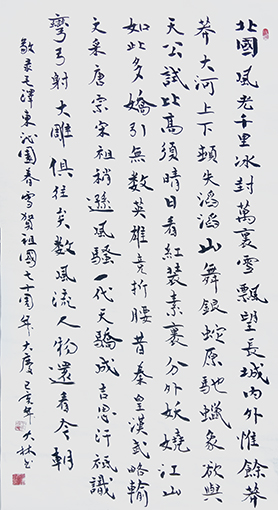 北國風光千里冰封萬裏雪飄望長城內外惟餘莽
莽大河上下頓失滔滔山舞銀蛇原馳蠟象欲與
天公試比高須晴日看紅裝素裹分外妖嬈江山
如此多嬌引無數英雄竞折腰昔秦皇漢武略輸
文采唐宗宋祖稍遜風騷一代天驕成吉思汗祗識
彎弓射大雕俱往矣數風流人物還看今朝
敬录毛澤東沁園春雪賀祖國七十周年大慶己亥年大林书